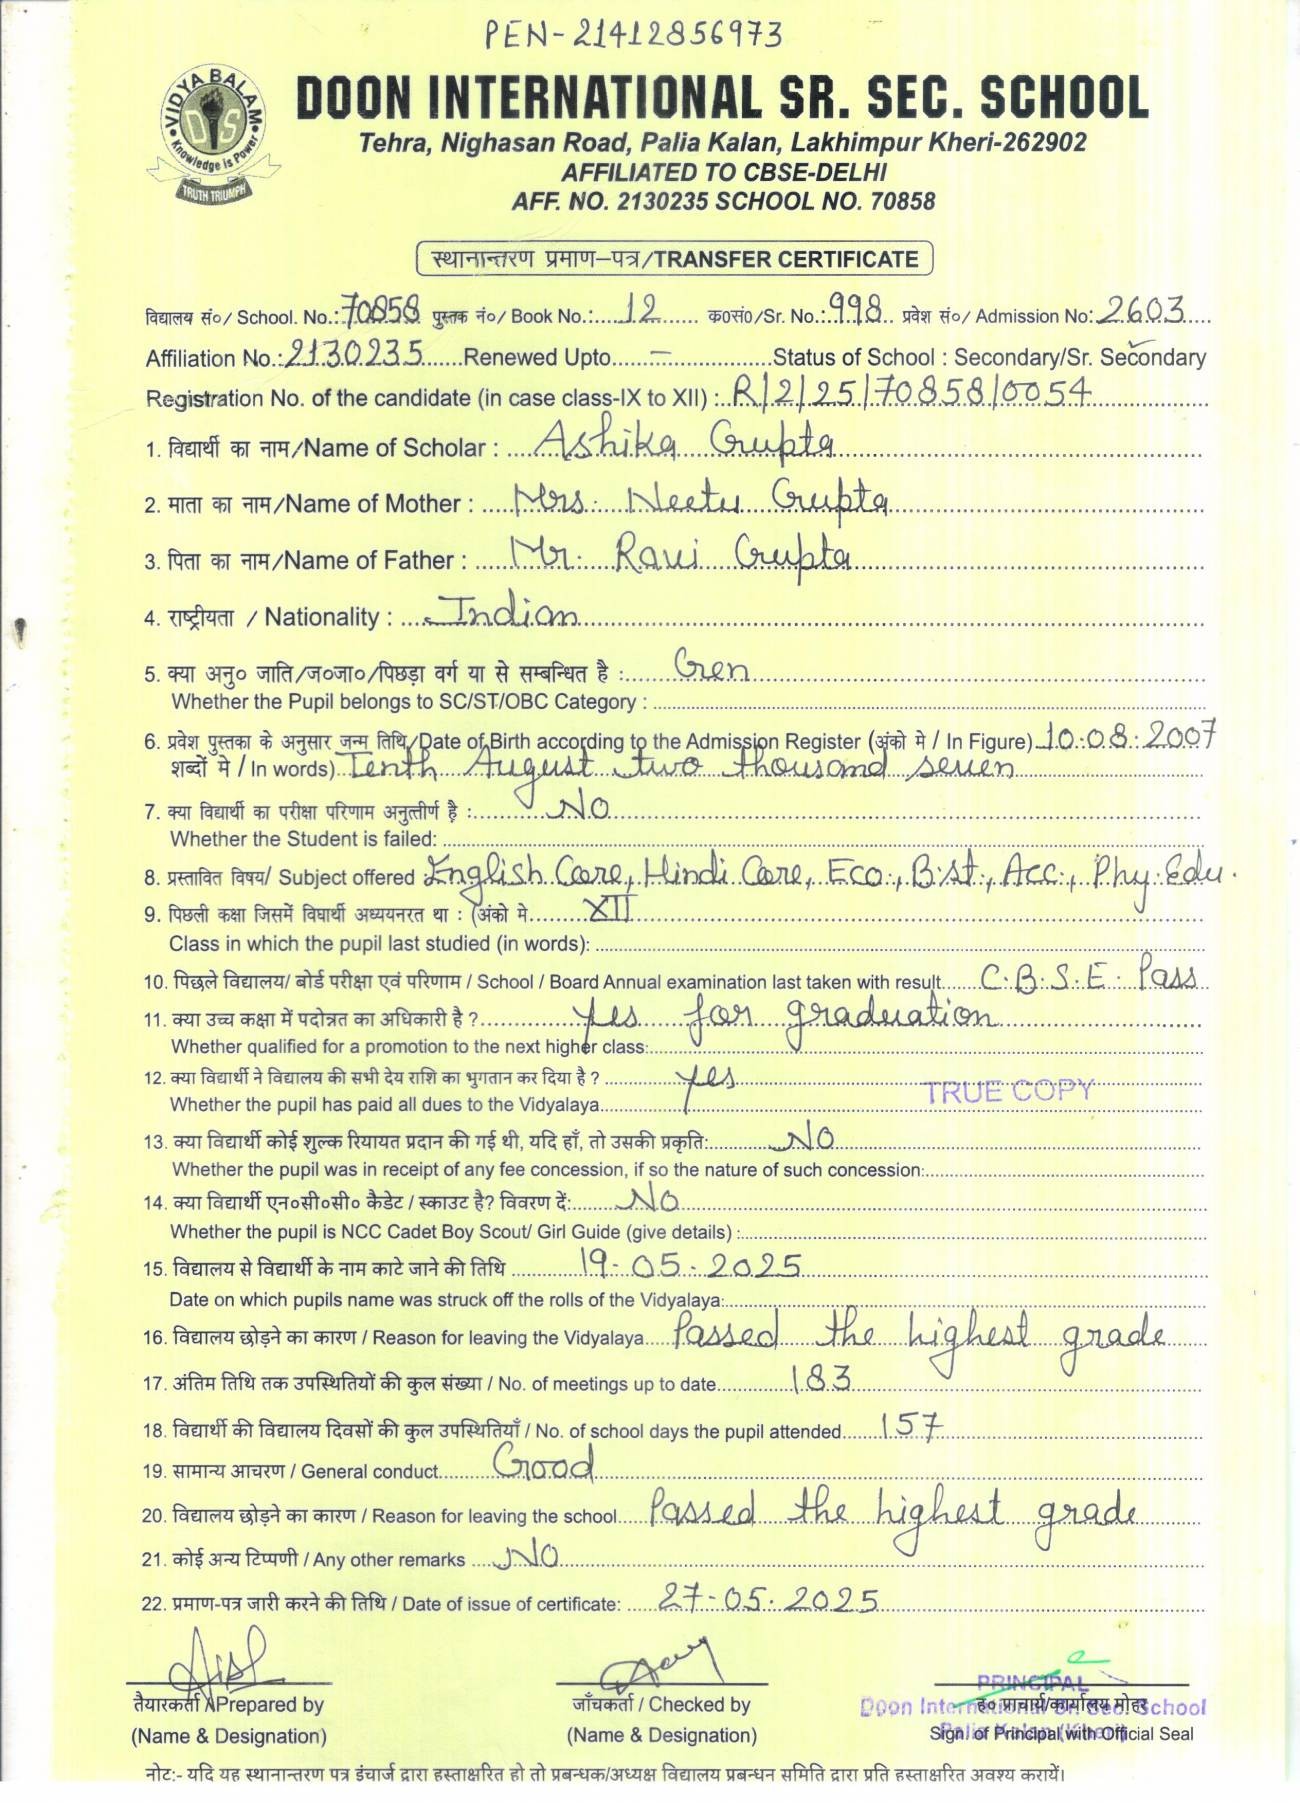 PEN-21412856973
VIDYA BALAM
DIS
Knowledge is Power
TRUTH TRIUMPH
DOON INTERNATIONAL SR. SEC. SCHOOL
Tehra, Nighasan Road, Palia Kalan, Lakhimpur Kheri-262902
AFFILIATED TO CBSE-DELHI
AFF. NO. 2130235 SCHOOL NO. 70858
स्थानान्तरण प्रमाण–पत्र/TRANSFER CERTIFICATE
विद्यालय सं०/ School. No.: 70858 पुस्तक नं०/ Book No.: 12 क०सं०/Sr. No.: 998 प्रवेश सं०/ Admission No: 2603
Affiliation No.: 2130235 Renewed Upto — Status of School : Secondary/Sr. Secondary
Registration No. of the candidate (in case class-IX to XII) : R/2/25/70858/0054
1. विद्यार्थी का नाम/Name of Scholar : Ashika Gupta
2. माता का नाम/Name of Mother : Mrs. Neetu Gupta
3. पिता का नाम/Name of Father : Mr. Ravi Gupta
4. राष्ट्रीयता / Nationality : Indian
5. क्या अनु० जाति/ज०जा०/पिछड़ा वर्ग या से सम्बन्धित है : Gen
Whether the Pupil belongs to SC/ST/OBC Category :
6. प्रवेश पुस्तका के अनुसार जन्म तिथि/Date of Birth according to the Admission Register (अंको मे / In Figure) 10.08.2007
शब्दों मे / In words) Tenth August two thousand seven
7. क्या विद्यार्थी का परीक्षा परिणाम अनुत्तीर्ण है : No
Whether the Student is failed:
8. प्रस्तावित विषय/ Subject offered English Core, Hindi Core, Eco., B.st., Acc., Phy. Edu.
9. पिछली कक्षा जिसमें विद्यार्थी अध्ययनरत था : (अंको मे XII
Class in which the pupil last studied (in words):
10. पिछले विद्यालय/ बोर्ड परीक्षा एवं परिणाम / School / Board Annual examination last taken with result C.B.S.E. Pass
11. क्या उच्च कक्षा में पदोन्नत का अधिकारी है ? yes for graduation
Whether qualified for a promotion to the next higher class:
12. क्या विद्यार्थी ने विद्यालय की सभी देय राशि का भुगतान कर दिया है ? yes
TRUE COPY
Whether the pupil has paid all dues to the Vidyalaya
13. क्या विद्यार्थी कोई शुल्क रियायत प्रदान की गई थी, यदि हाँ, तो उसकी प्रकृति: No
Whether the pupil was in receipt of any fee concession, if so the nature of such concession:
14. क्या विद्यार्थी एन०सी०सी० कैडेट / स्काउट है? विवरण दें: No
Whether the pupil is NCC Cadet Boy Scout/ Girl Guide (give details) :
15. विद्यालय से विद्यार्थी के नाम काटे जाने की तिथि 19-05-2025
Date on which pupils name was struck off the rolls of the Vidyalaya:
16. विद्यालय छोड़ने का कारण / Reason for leaving the Vidyalaya Passed the highest grade
17. अंतिम तिथि तक उपस्थितियों की कुल संख्या / No. of meetings up to date 183
18. विद्यार्थी की विद्यालय दिवसों की कुल उपस्थितियाँ / No. of school days the pupil attended 157
19. सामान्य आचरण / General conduct Good
20. विद्यालय छोड़ने का कारण / Reason for leaving the school Passed the highest grade
21. कोई अन्य टिप्पणी / Any other remarks No
22. प्रमाण-पत्र जारी करने की तिथि / Date of issue of certificate: 27-05-2025
PRINCIPAL
तैयारकर्ता / Prepared by जाँचकर्ता / Checked by ह० प्राचार्य/कार्यालय मोहर
Doon International Sr. Sec. School
(Name & Designation) (Name & Designation) Sign of Principal with Official Seal
Palia Kalan (Kheri)
नोट:- यदि यह स्थानान्तरण पत्र इंचार्ज द्वारा हस्ताक्षरित हो तो प्रबन्धक/अध्यक्ष विद्यालय प्रबन्धन समिति द्वारा प्रति हस्ताक्षरित अवश्य करायें।